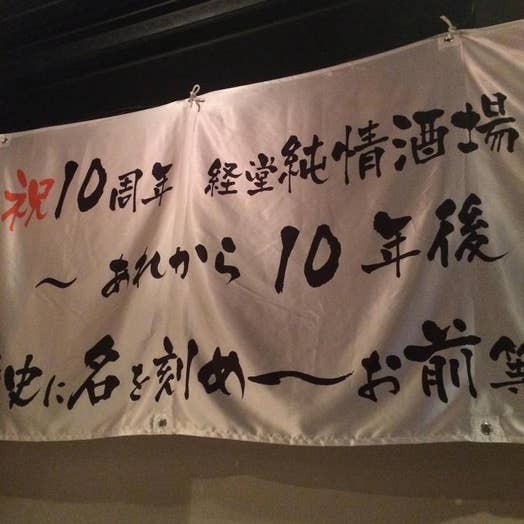 祝10周年 経堂純情酒場
～あれから10年後
史に名を刻め～お前等